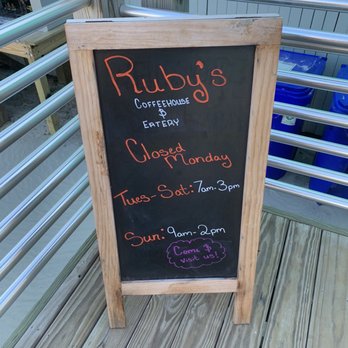 Ruby's
Coffeehouse
&
Eatery
Closed
Monday
Tues-Sat: 7am-3pm
Sun: 9am-2pm
Come &
visit us!